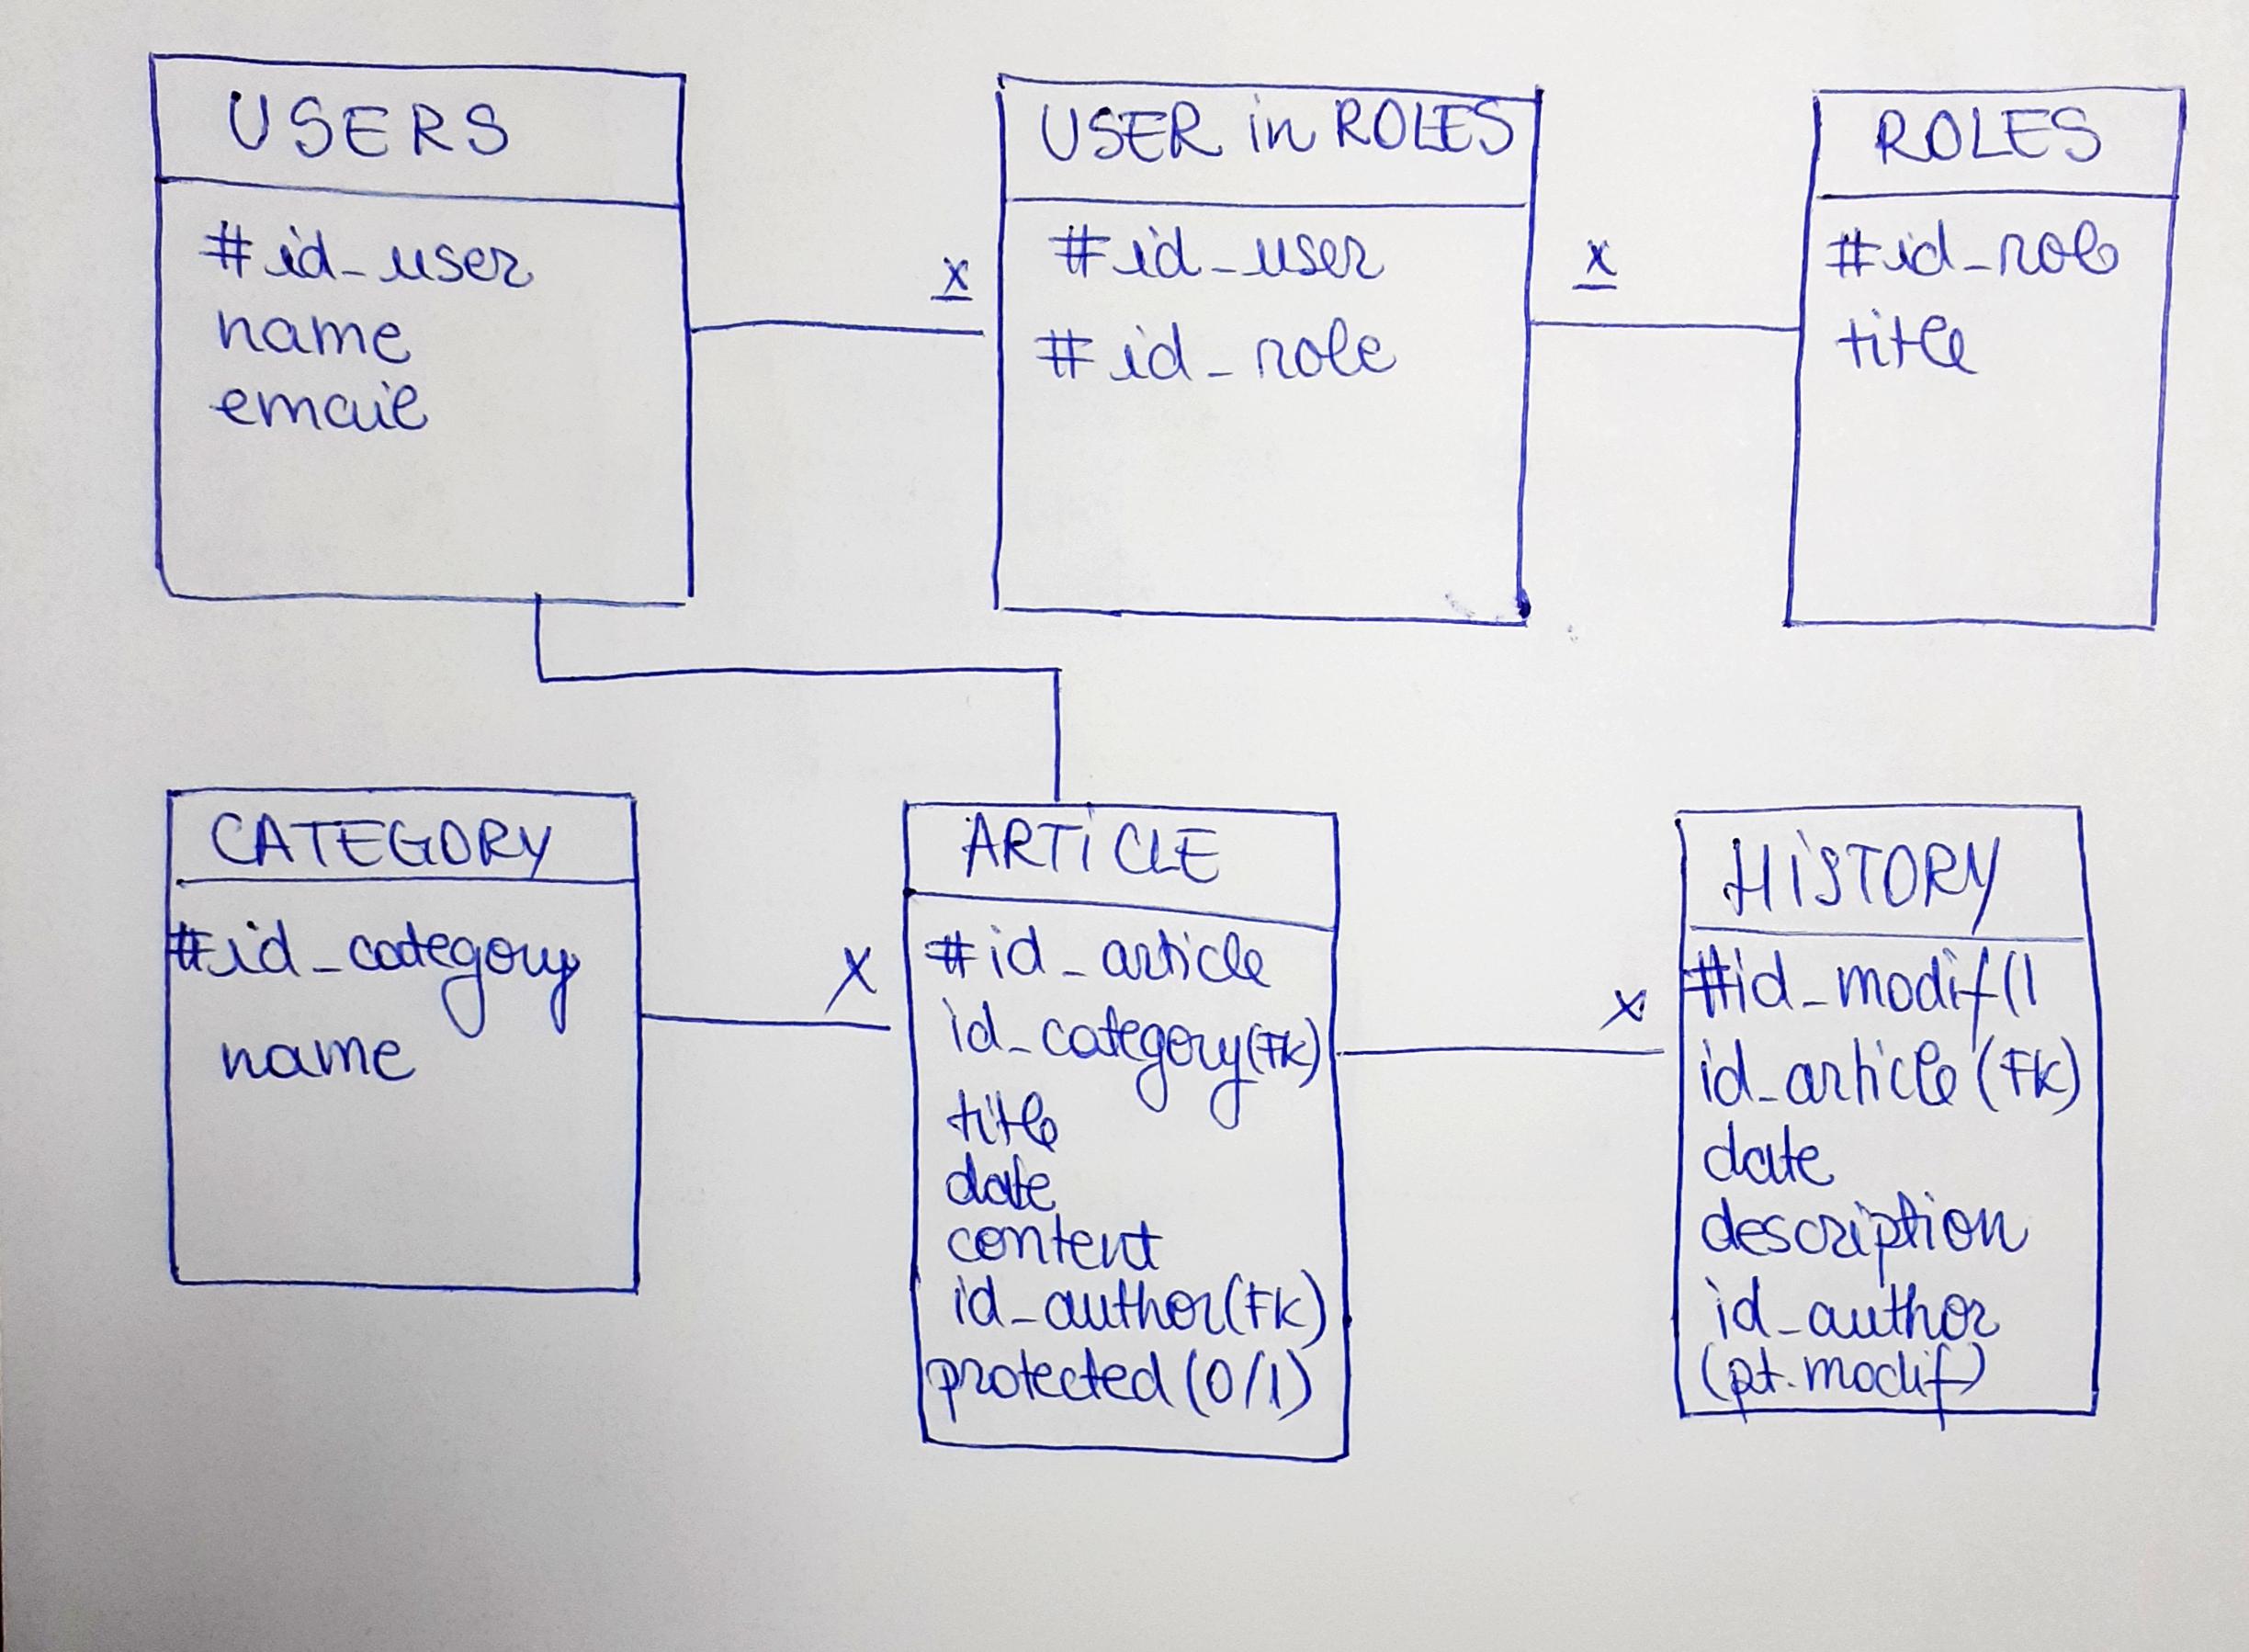 USERS
#id_user
name
email
USER in ROLES
#id_user
#id_role
ROLES
#id_role
title
x
x
CATEGORY
#id_category
name
X
ARTiCLE
#id_article
id_category(FK)
title
date
content
id_author(FK)
protected (0/1)
x
HiSTORY
#id_modif(1
id_article (FK)
date
description
id_author
(pt. modif)